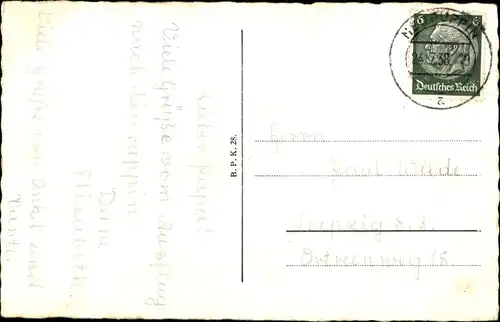 Lieber Papa!
Viele Grüße vom Ausflug
nach Neuruppin.
Deine
Elisabeth.
Viele Grüße von Onkel und
Tante.
B. P. K. 28.
6
NEURUPPIN
38
z
Deutsches Reich
Herrn
Paul Wilde
Leipzig
15